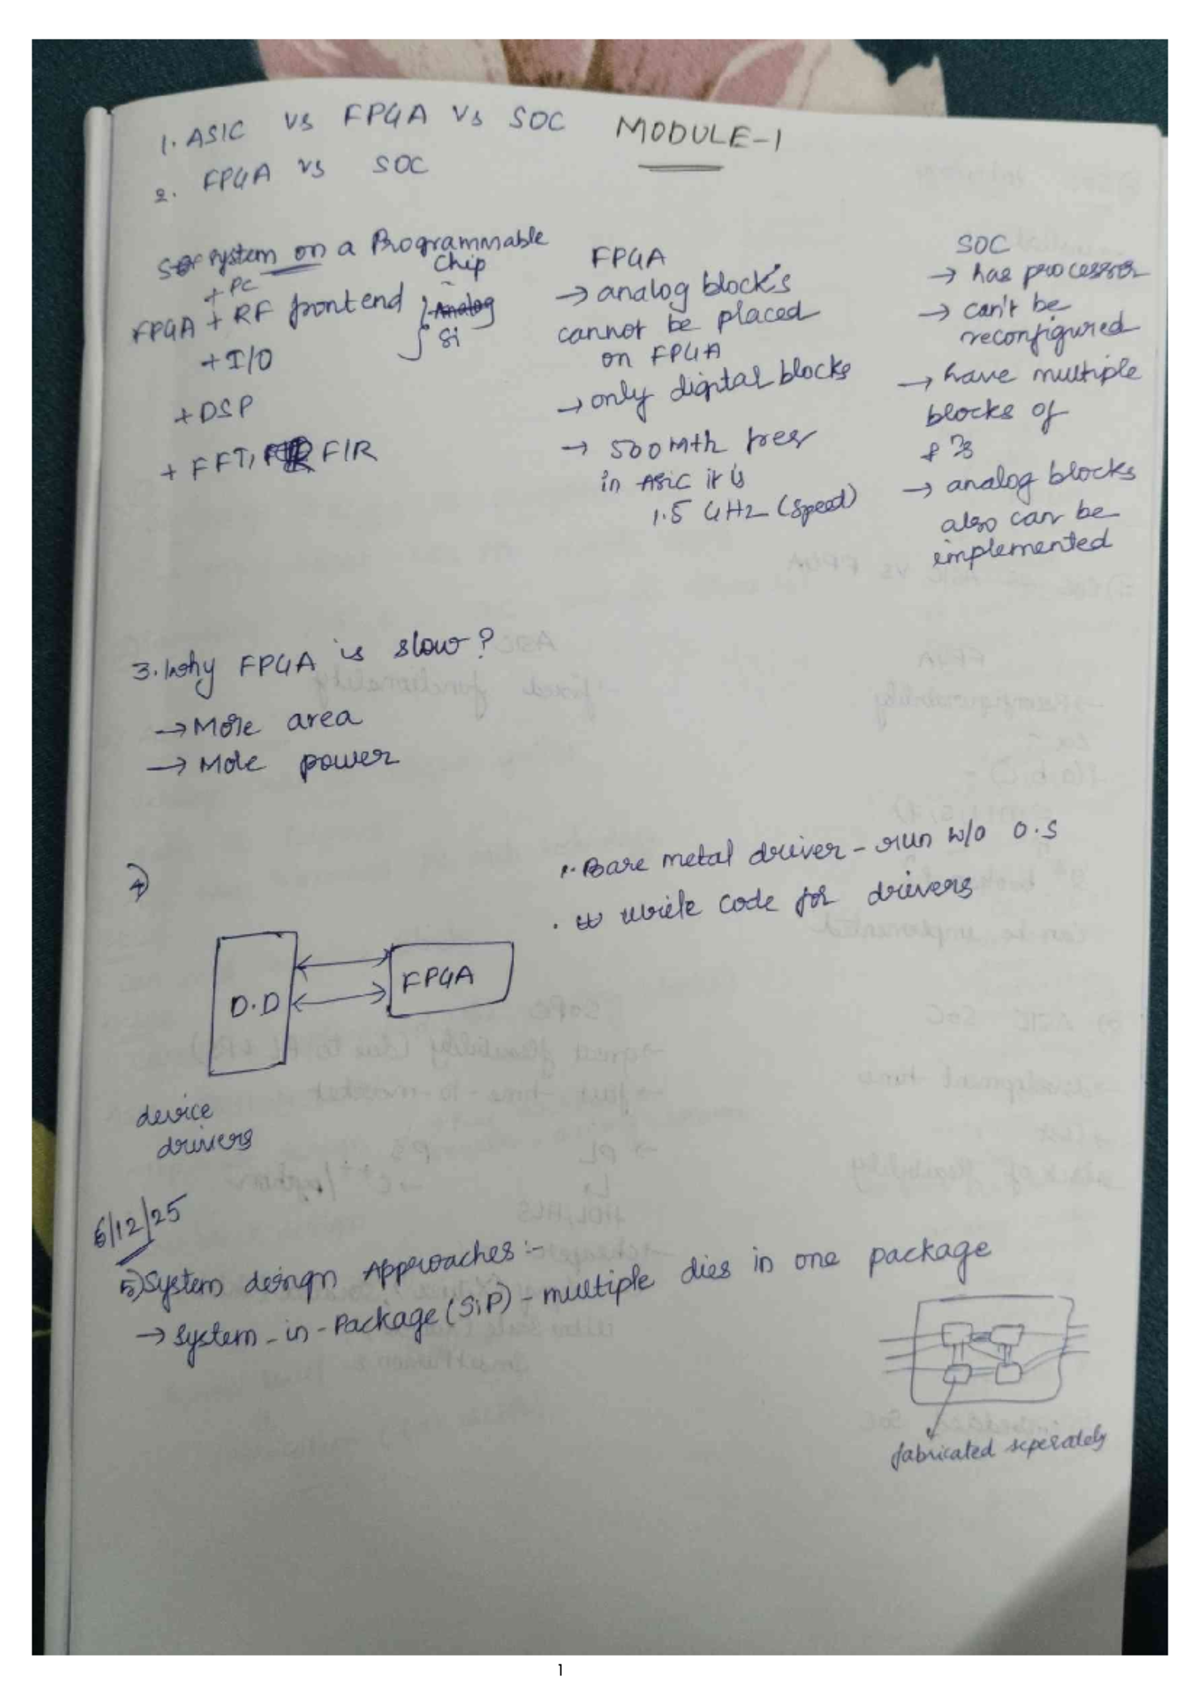 1. ASIC vs FPGA vs SOC MODULE-1
2. FPGA vs SOC
system on a Programmable
Chip
+ PC
FPGA + RF frontend
Si
+ I/O
+ DSP
+ FFT, FIR
FPGA
→ analog blocks
cannot be placed
on FPGA
→ only digital blocks
→ 500 Mth
in ASIC it is
1.5 GHz (speed)
SOC
→ has processor
→ can't be
reconfigured
→ have multiple
blocks of
→ analog blocks
also can be
implemented
3. Why FPGA is slow?
→ More area
→ More power
4)
. Bare metal driver - run w/o O.S
. write code for drivers
D.D
FPGA
device
drivers
6/12/25
5) System design Approaches :-
→ System-in-Package (SiP) - multiple dies in one package
fabricated seperately
1